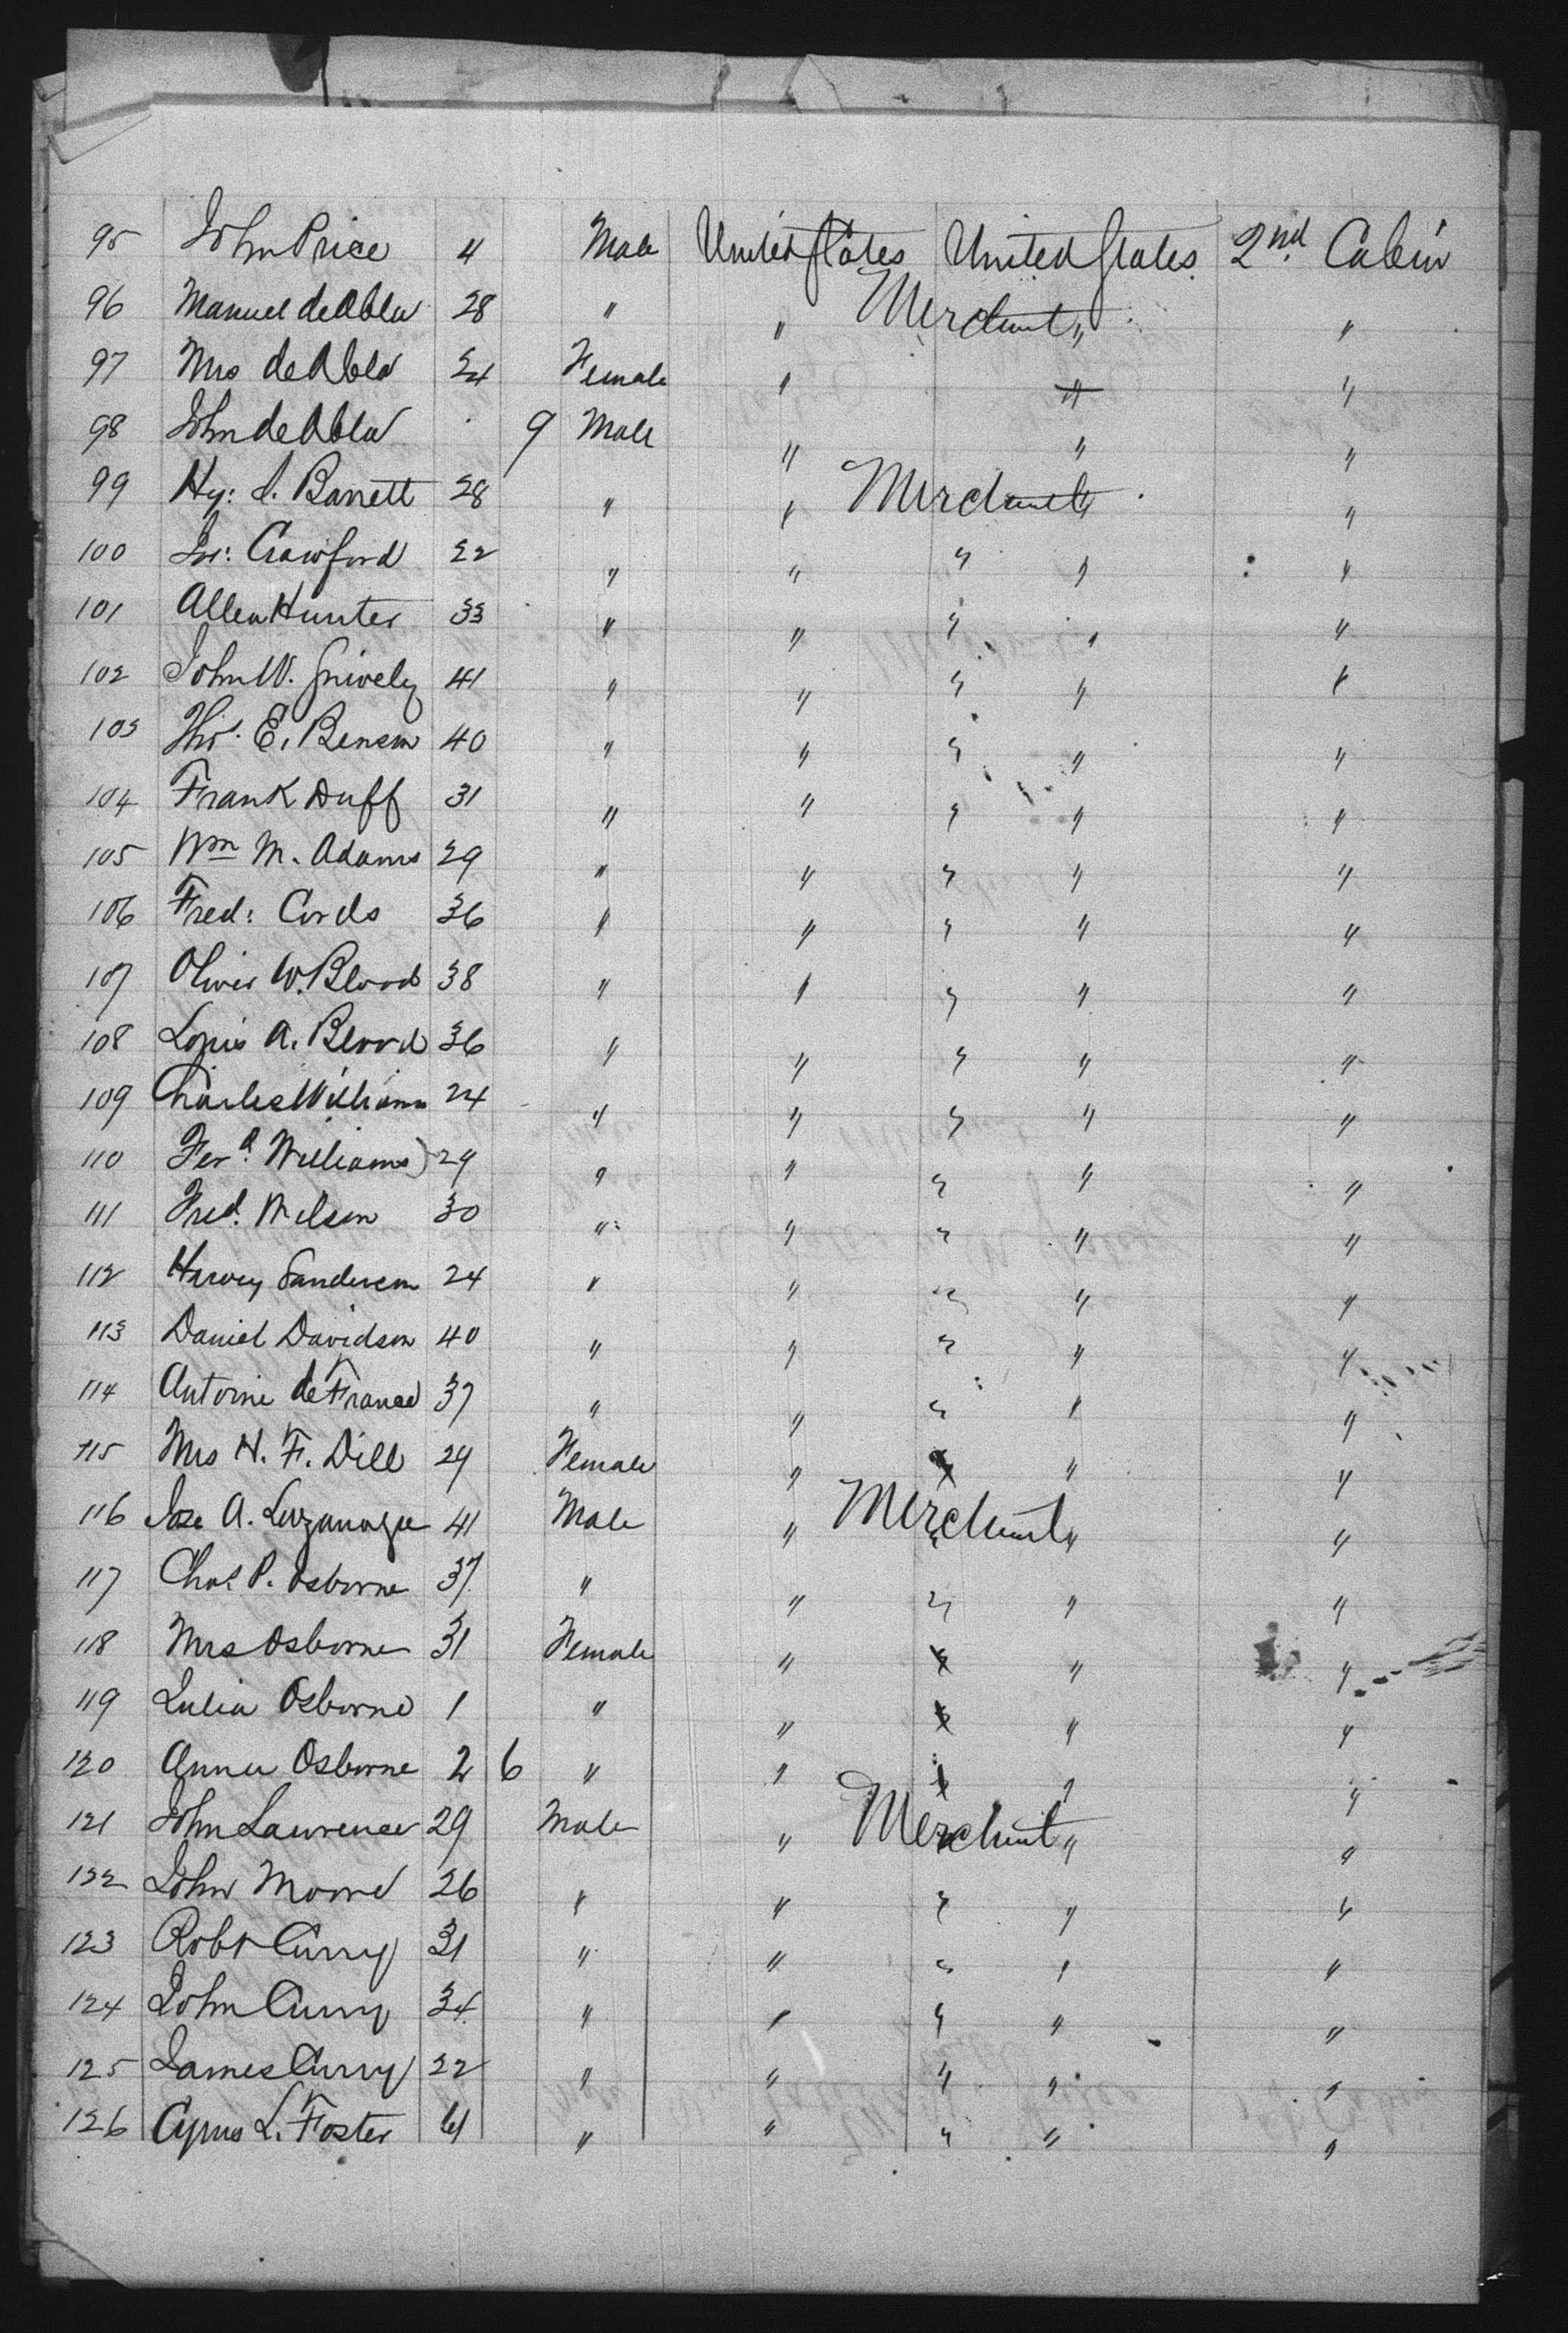 95 John Price 4 Male United States United States 2nd Cabin
96 Manuel de Abla 28 " " Merchant " "
97 Mrs de Abla 24 Female " " "
98 John de Abla 9 Male " " "
99 Hy: S. Barrett 28 " " Merchant " "
100 Crawford 22 " " " " "
101 Allen Hunter 33 " " " " "
102 John W. Snively 41 " " " " "
103 Tho. E. Benson 40 " " " " "
104 Frank Duff 31 " " " " "
105 Wm M. Adams 29 " " " " "
106 Fred: Cords 36 " " " " "
107 Oliver W. Blood 38 " " " " "
108 Louis A. Blood 36 " " " " "
109 Charles Williams 24 " " " " "
110 Ferd. Williams 29 " " " " "
111 Fred. Wilson 30 " " " " "
112 Harvey Sanderson 24 " " " " "
113 Daniel Davidson 40 " " " " "
114 Antoine de France 37 " " " " "
115 Mrs H. F. Dill 29 Female " " "
116 Jose A. 41 Male " Merchant " "
117 Chas P. Osborne 37 " " " " "
118 Mrs Osborne 31 Female " " "
119 Julia Osborne 1 " " " "
120 Anna Osborne 2 6 " " " "
121 John Lawrence 29 Male " Merchant " "
122 John Moore 26 " " " " "
123 Robt Curry 31 " " " " "
124 John Curry 34 " " " " "
125 James Curry 22 " " " " "
126 Cyrus L. Foster 61 " " " " "